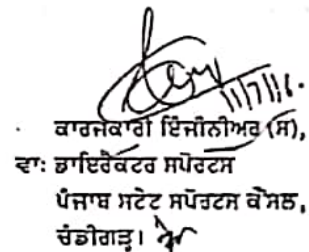 11/7/16.
ਕਾਰਜਕਾਰੀ ਇੰਜੀਨੀਅਰ (ਸ),
ਵਾ: ਡਾਇਰੈਕਟਰ ਸਪੋਰਟਸ
ਪੰਜਾਬ ਸਟੇਟ ਸਪੋਰਟਸ ਕੌਂਸਲ,
ਚੰਡੀਗੜ੍ਹ।